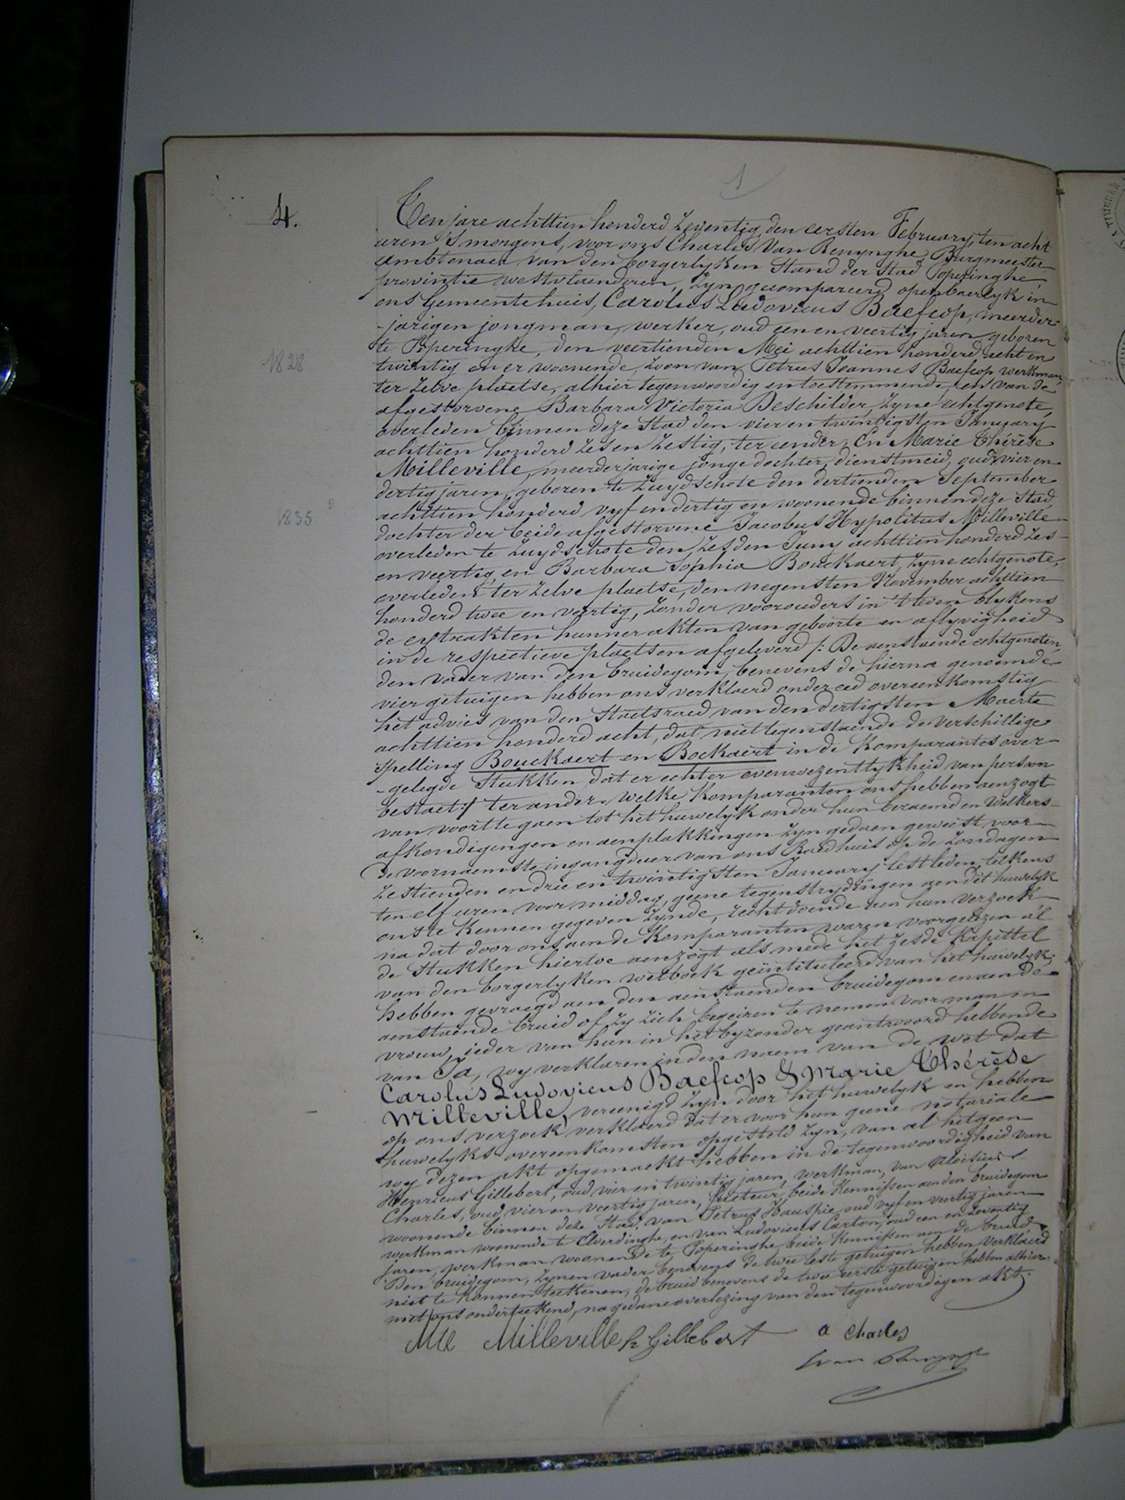 1
4.
Ten jare achttien honderd zeventig, den eersten February, ten acht
uren 's morgens, voor ons Charles Van Renynghe, Burgmeester
ambtenaer van den borgerlyken Stand der Stad Poperinghe
provintie westvlaenderen, zyn gecompareerd openbaerlyk in
ons Gemeentehuis, Carolus Ludovicus Baefcop, meerder-
-jarigen jongman, werker, oud een en veertig jaren, geboren
te Poperinghe, den veertienden Mei achttien honderd acht en
1828
twintig en er woonende, zoon van Petrus Joannes Baefcop werkman,
ter zelve plaetse, alhier tegenwoordig en toestemmende, en van de
afgestorvene Barbara Victoria Deschilder, zyne echtgenote,
overleden binnen deze stad den vier en twintigsten January
achttien honderd zes en zestig, ter eender; En Marie Thérèse
Milleville, meerderjarige jonge dochter, dienstmeid, oud vier en
dertig jaren, geboren te Zuydschote den dertienden September
1835
achttien honderd vyf en dertig en woonende binnen deze stad,
dochter der beide afgestorvene Jacobus Hypolitus Milleville
overleden te Zuydschote den zesden Juny achttien honderd zes-
en veertig, en Barbara Sophia Bouckaert, zyne echtgenote,
overleden ter zelve plaetse, den negensten November achttien
honderd twee en veertig, zonder voorouders in 't leven blykens
de extrakten hunner akten van geboorte en aflyvigheid
in de respectieve plaetsen afgeleverd; De aenstaende echtgenoten,
den vader van den bruidegom, benevens de hierna genoemde
vier getuigen hebben ons verklaerd onder eed overeenkomstig
het advies van den Staetsraed van den dertigsten Maerte
achttien honderd acht, dat niettegenstaende de verschillige
spelling Bouckaert en Bockaert in de komparantes over-
-gelegde Stukken dat er echter eenwezentlykheid van persoon
bestaet; ter ander. Welke komparanten ons hebben aenzogt
van voort te gaen tot het huwelyk onder hun beraemd en welkers
afkondigingen en aenplakkingen zyn gedaen geweest voor
de voornaemste ingangdeur van ons Raedhuis op de zondagen
zestienden en drie en twintigsten January lestleden, telkens
ten elf uren voormiddag, geene tegenstrydingen aen dit huwelyk
ons te kennen gegeven zynde, recht doende aen hun verzoek
na dat door ons aen de komparanten waren voorgelezen al
de Stukken hiertoe aenzogt als mede het zesde kapittel
van den borgerlyken wetboek geïntituleerd van het huwelyk;
hebben gevraegd aen den aenstaenden bruidegom en aen de
aenstaende bruid of zy zich begeiren te nemen voor man en
vrouw, jeder van hun in het byzonder geantwoord hebbende
van Ja, wy verklaren in den naem van de wet dat
Carolus Ludovicus Baefcop & Marie Thérèse
Milleville, vereenigd zyn door het huwelyk en hebben
op ons verzoek verklaerd dat er voor hun geene notariale
huwelyks overeenkomsten opgesteld zyn, van al hetgeen
wy dezen akt opgemaekt hebben in de tegenwoordigheid van
Henricus Gillebert, oud vier en twintig jaren, werkman, van Aloisius
Charles, oud vier en veertig jaren, beide kennissen aen den bruidegom
woonende binnen deze Stad, van Petrus Hauspie, oud vyf en veertig jaren
werkman woonende te Elverdinghe, en van Ludovicus Carton, oud een en zeventig
jaren, werkman woonende te Poperinghe, beide kennissen aen de bruid.
Den bruidegom, zynen vader benevens de twee leste getuigen hebben verklaerd
niet te konnen teekenen, de bruid benevens de twee eerste getuigen hebben alhier
met ons onderteekend, na gedane overlezing van den tegenwoordigen akt.
Mtе Milleville h Gillebert a Charles